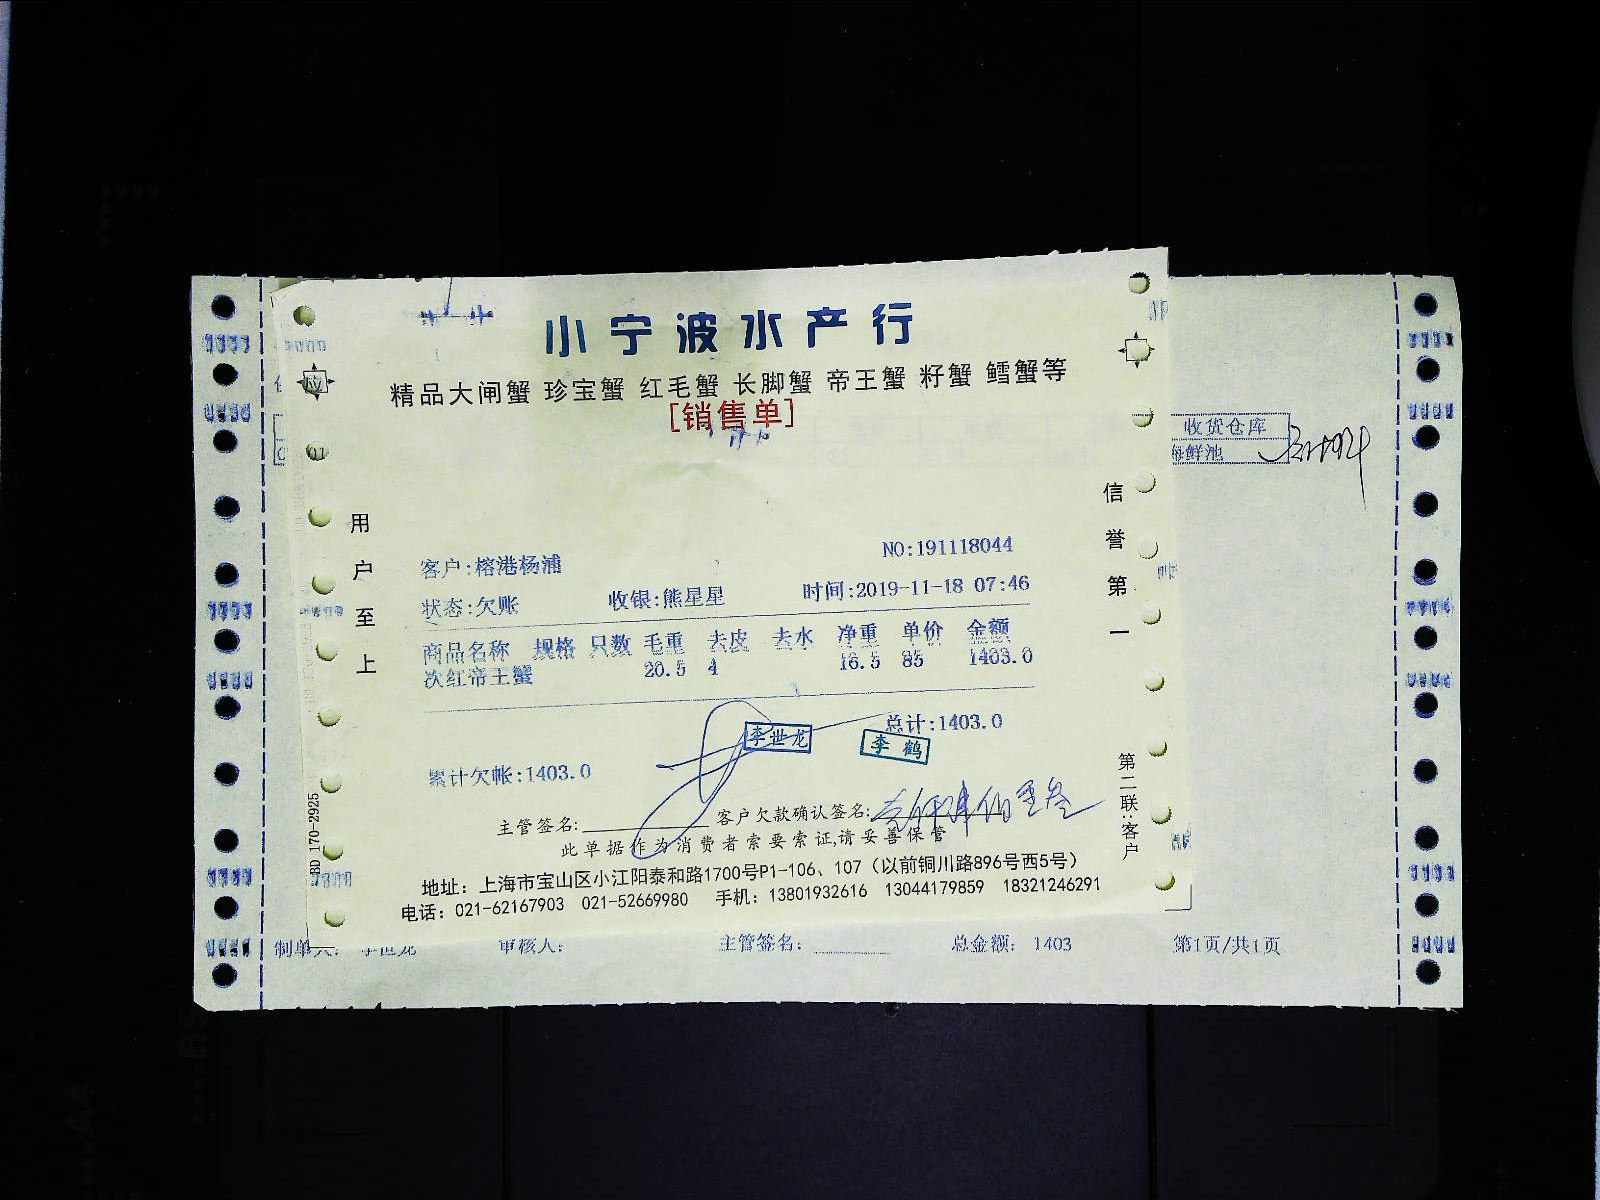 小宁波水产行
精品大闸蟹 珍宝蟹 红毛蟹 长脚蟹 帝王蟹 籽蟹 鳕蟹等
[销售单]
收货仓库
海鲜池
用户至上
信誉第一
NO:191118044
客户:榕港杨浦
状态:欠账 收银:熊星星 时间:2019-11-18 07:46
商品名称 规格 只数 毛重 去皮 去水 净重 单价 金额
次红帝王蟹 20.5 4 16.5 85 1403.0
总计:1403.0
李世龙
李鹤
累计欠帐:1403.0
主管签名: 客户欠款确认签名: 壹仟肆佰零叁
此单据作为消费者索要索证,请妥善保管
地址：上海市宝山区小江阳泰和路1700号P1-106、107（以前铜川路896号西5号）
电话：021-62167903 021-52669980 手机：13801932616 13044179859 18321246291
第二联:客户
BD 170-2925
制单人: 李世龙 审核人: 主管签名: 总金额: 1403 第1页/共1页